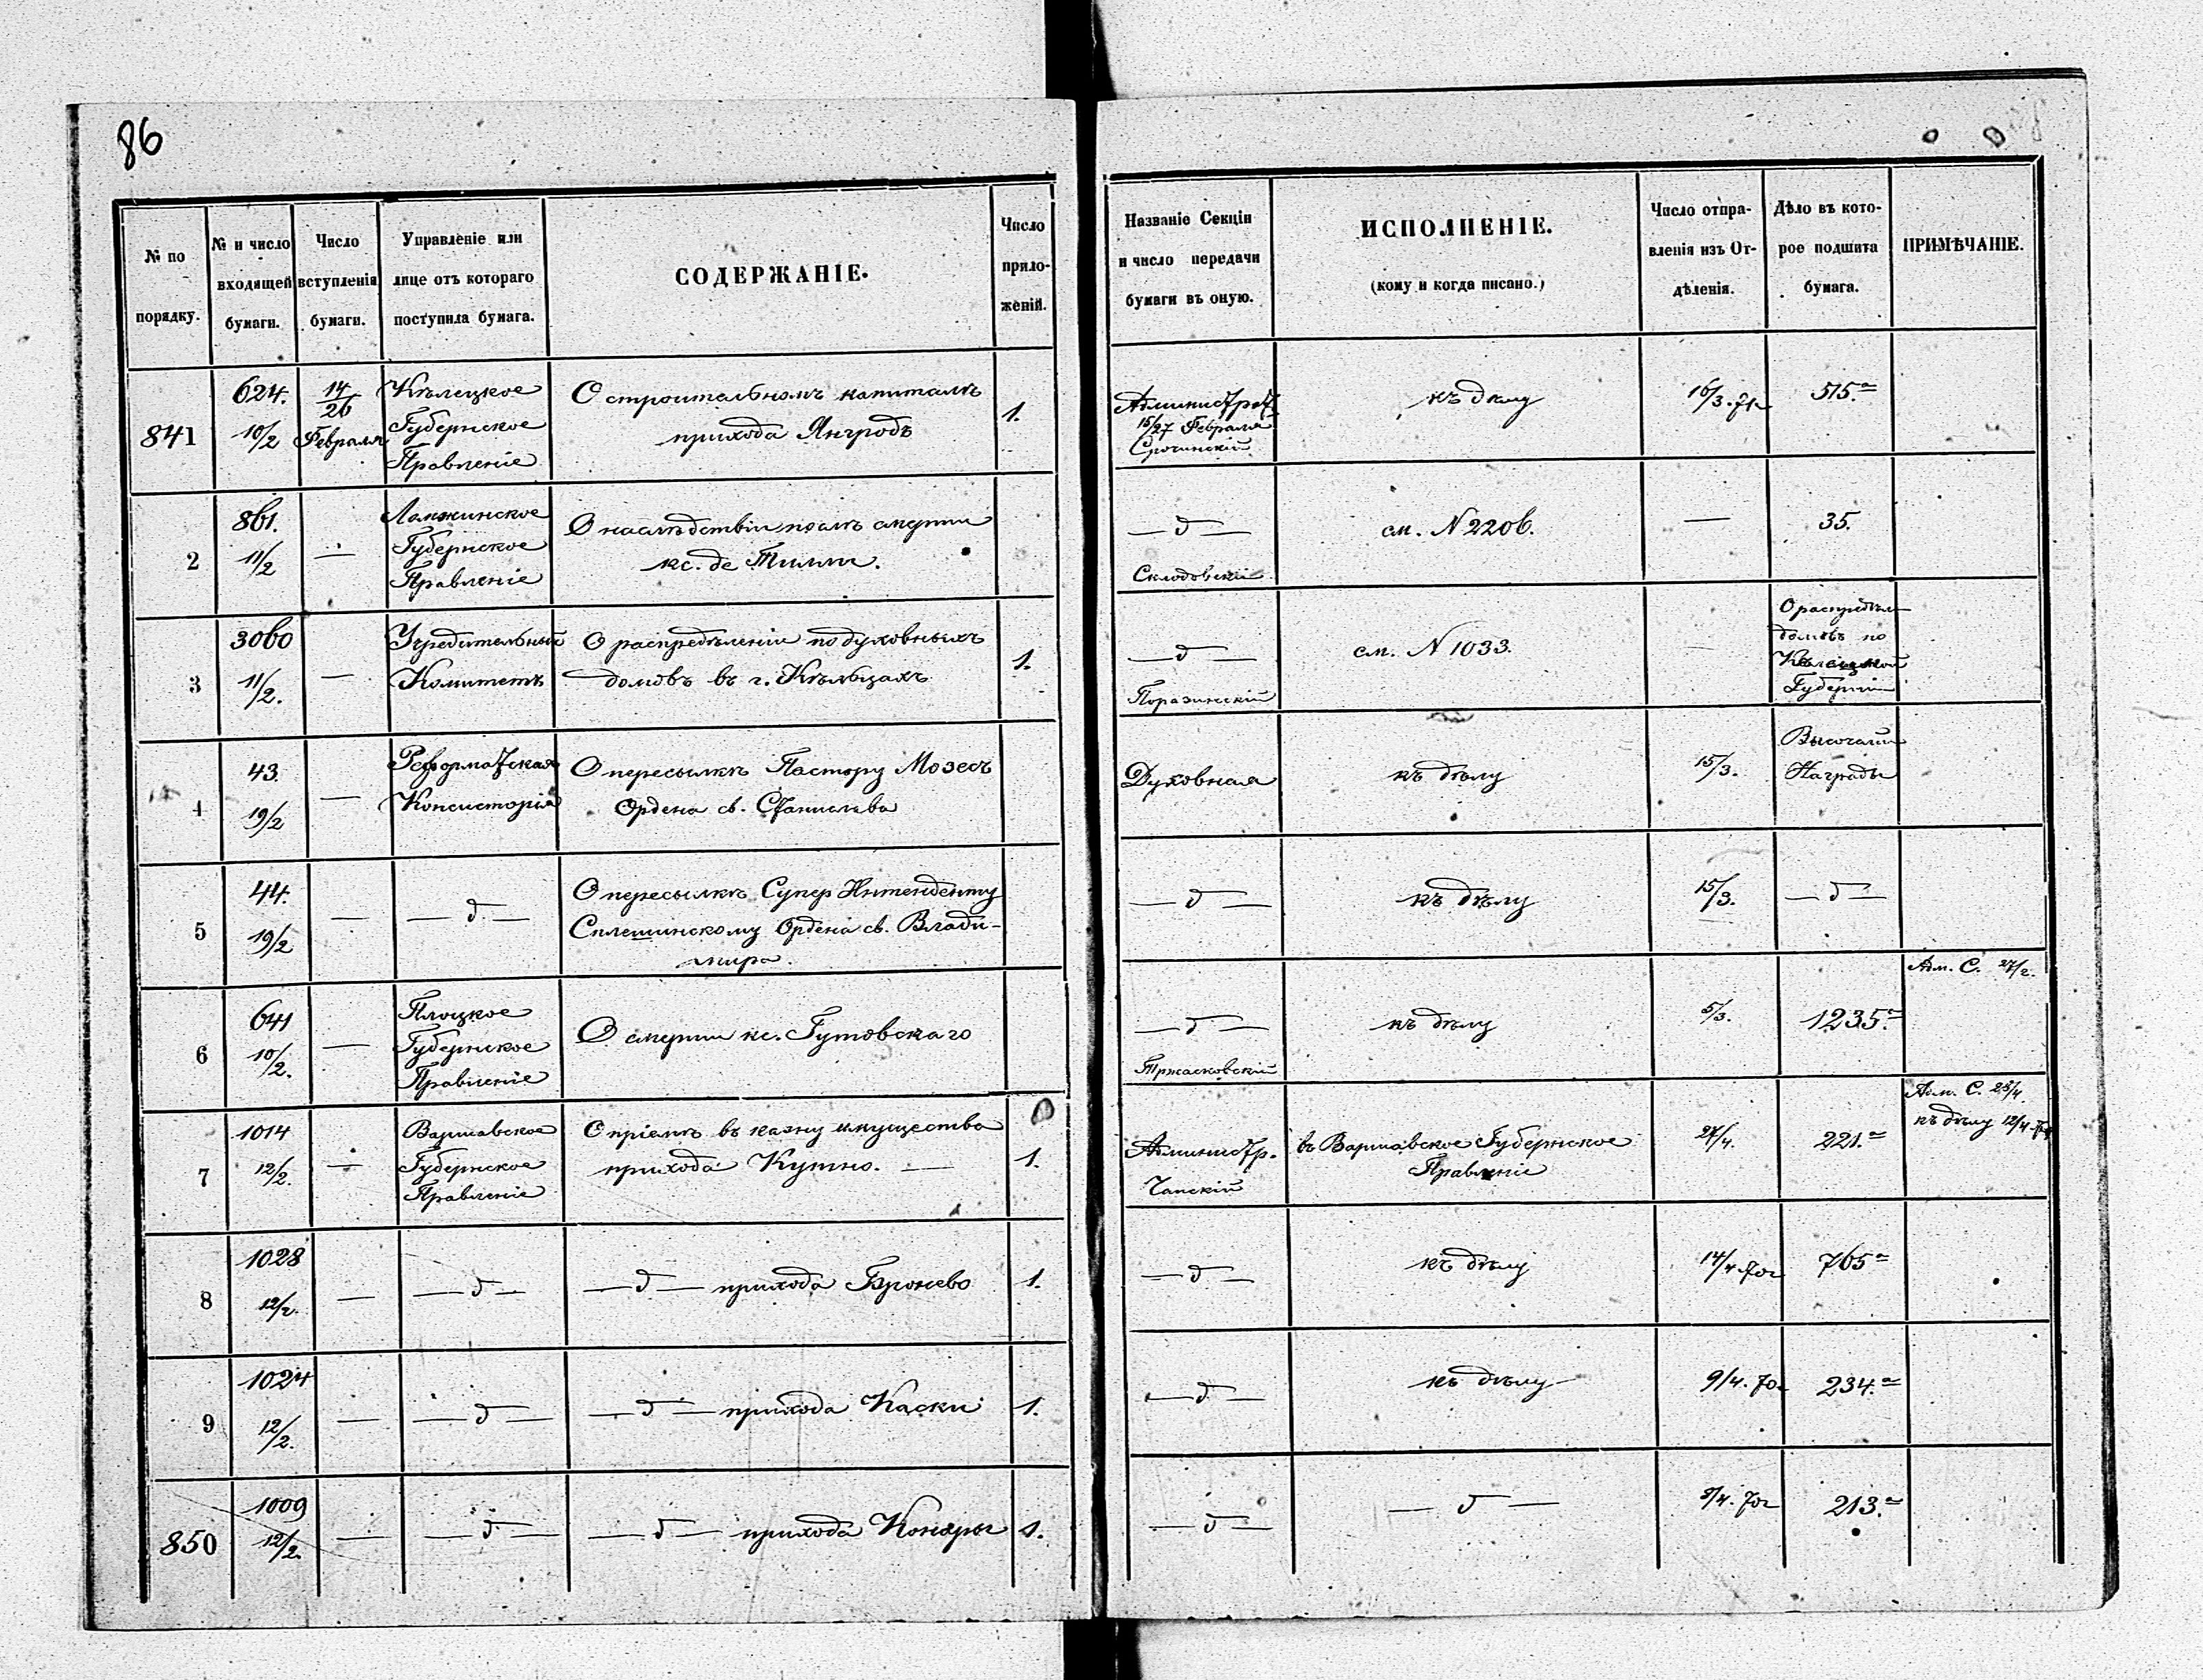 86
№ по
порядку.
№ и число
входящей
бумаги.
Число
вступленія
бумаги.
Управленіе или
лице отъ котораго
поступила бумага.
СОДЕРЖАНІЕ.
Число
прило-
женій.
Названіе Секціи
и число передачи
бумаги въ оную.
ИСПОЛНЕНІЕ.
(кому и когда писано.)
Число отпра-
вленія изъ От-
дѣленія.
Дѣло въ кото-
рое подшита
бумага.
ПРИМѢЧАНІЕ.
841
624.
10/2
14/26
Февраля
Кѣлецкое
Губернское
Правленіе
О строительномъ капиталѣ
прихода Янгродъ
1.
Администрат.
15/27 Февраля
къ дѣлу
16/3. 71
515.а
2
861.
11/2
—
Ломжинское
Губернское
Правленіе
О наслѣдствіи послѣ смерти
кс. де Тилли.
— д —
Склодовскій
см. N 2206.
—
35.
3
3060
11/2.
—
Учредительный
Комитетъ
О распредѣленіи подуховныхъ
домовъ въ г. Кѣльцахъ
1.
— д —
Поразинскій
см. N 1033.
—
О распредѣл.
домовъ по
Кѣлецкой
Губерніи
4
43.
19/2
—
Реформатская
Консисторія
О пересылкѣ Пастору Мозесъ
Ордена св. Станислава
Духовная
къ дѣлу
15/3.
Высочайш.
Награды
5
44.
19/2
—
— д. —
О пересылкѣ Супер Интенденту
Сплешинскому Ордена св. Влади-
мира.
— д —
къ дѣлу
15/3.
— д —
6
641
10/2.
—
Плоцкое
Губернское
Правленіе
О смерти кс. Гутовскаго
— д —
Тржасковскій
къ дѣлу
5/3.
1235.а
Адм. С. 27/2.
7
1014
12/2.
—
Варшавское
Губернское
Правленіе
О пріемѣ въ казну имущества
прихода Кутно. —
1.
Администр.
Чапскій
въ Варшавское Губернское
Правленіе
27/4.
221.а
Адм. С. 23/4.
къ дѣлу 12/4
8
1028
12/2.
—
— д —
— д — прихода Бронево
1.
— д —
къ дѣлу
14/4 70г
765а
9
1024
12/2.
—
— д —
— д — прихода Каски
1.
— д —
къ дѣлу
9/4. 70г
234.а
850
1009
12/2.
—
— д —
— д — прихода Конары
1.
— д —
— д —
9/4. 70г
213.а